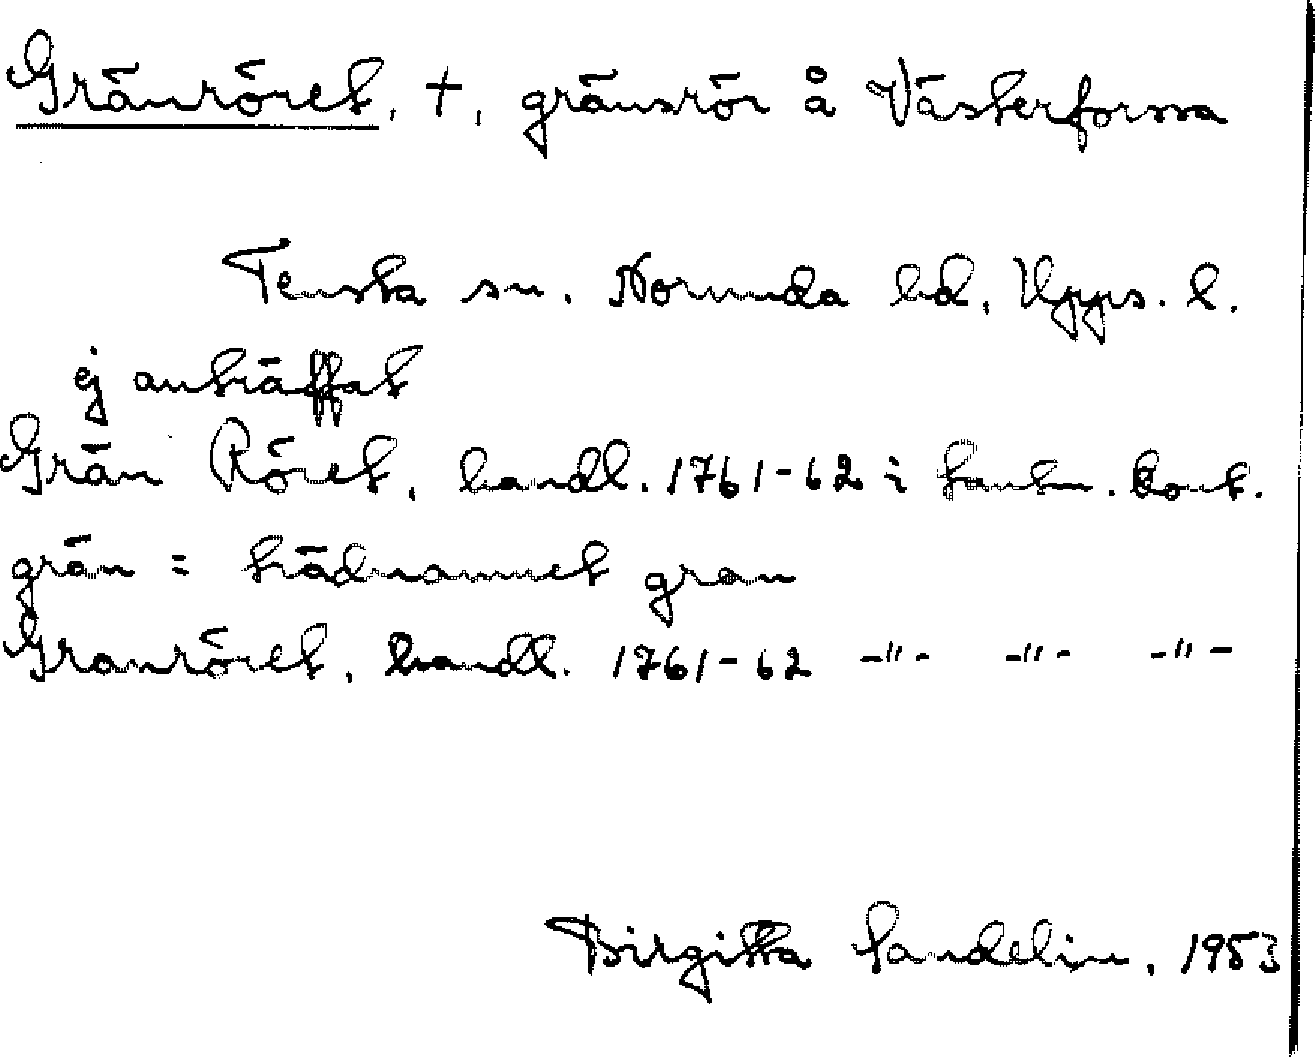 Gränröret, +, gränsrör å Västerforssa
Tensta sn. Norunda hd, Upps. l.
ej anträffat
Grän Röret, handl. 1761-62 i Lantm. kont.
grän = trädnamnet gran
Granröret, handl. 1761-62 -"- -"- -"-
Birgitta Sandelin, 1953